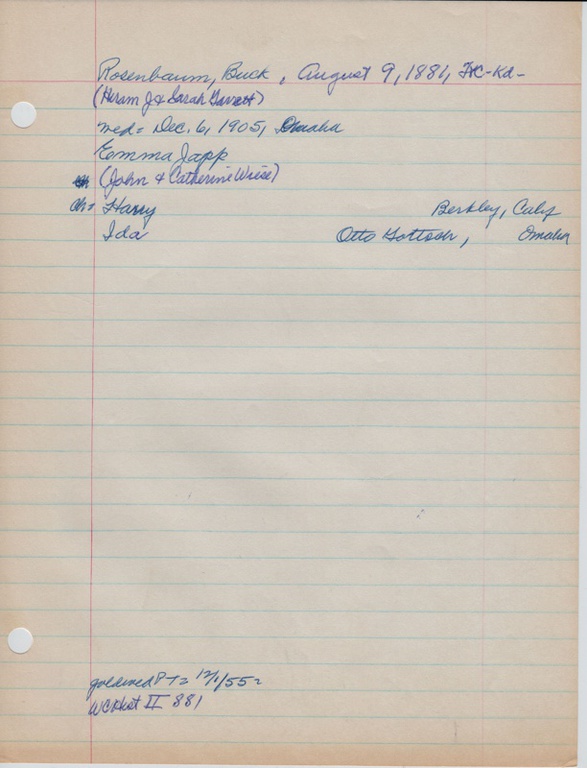 Rosenbaum, Buck, August 9, 1881,
(Hiram J & Sarah Gavett)
wed = Dec. 6, 1905, Omaha
Emma Japp
(John & Catherine Wiese)
ch = Harry Berkley, Calif
Ida Otto Gottsch, Omaha
goldwed PT= 12/1/55=
WCHist II 881